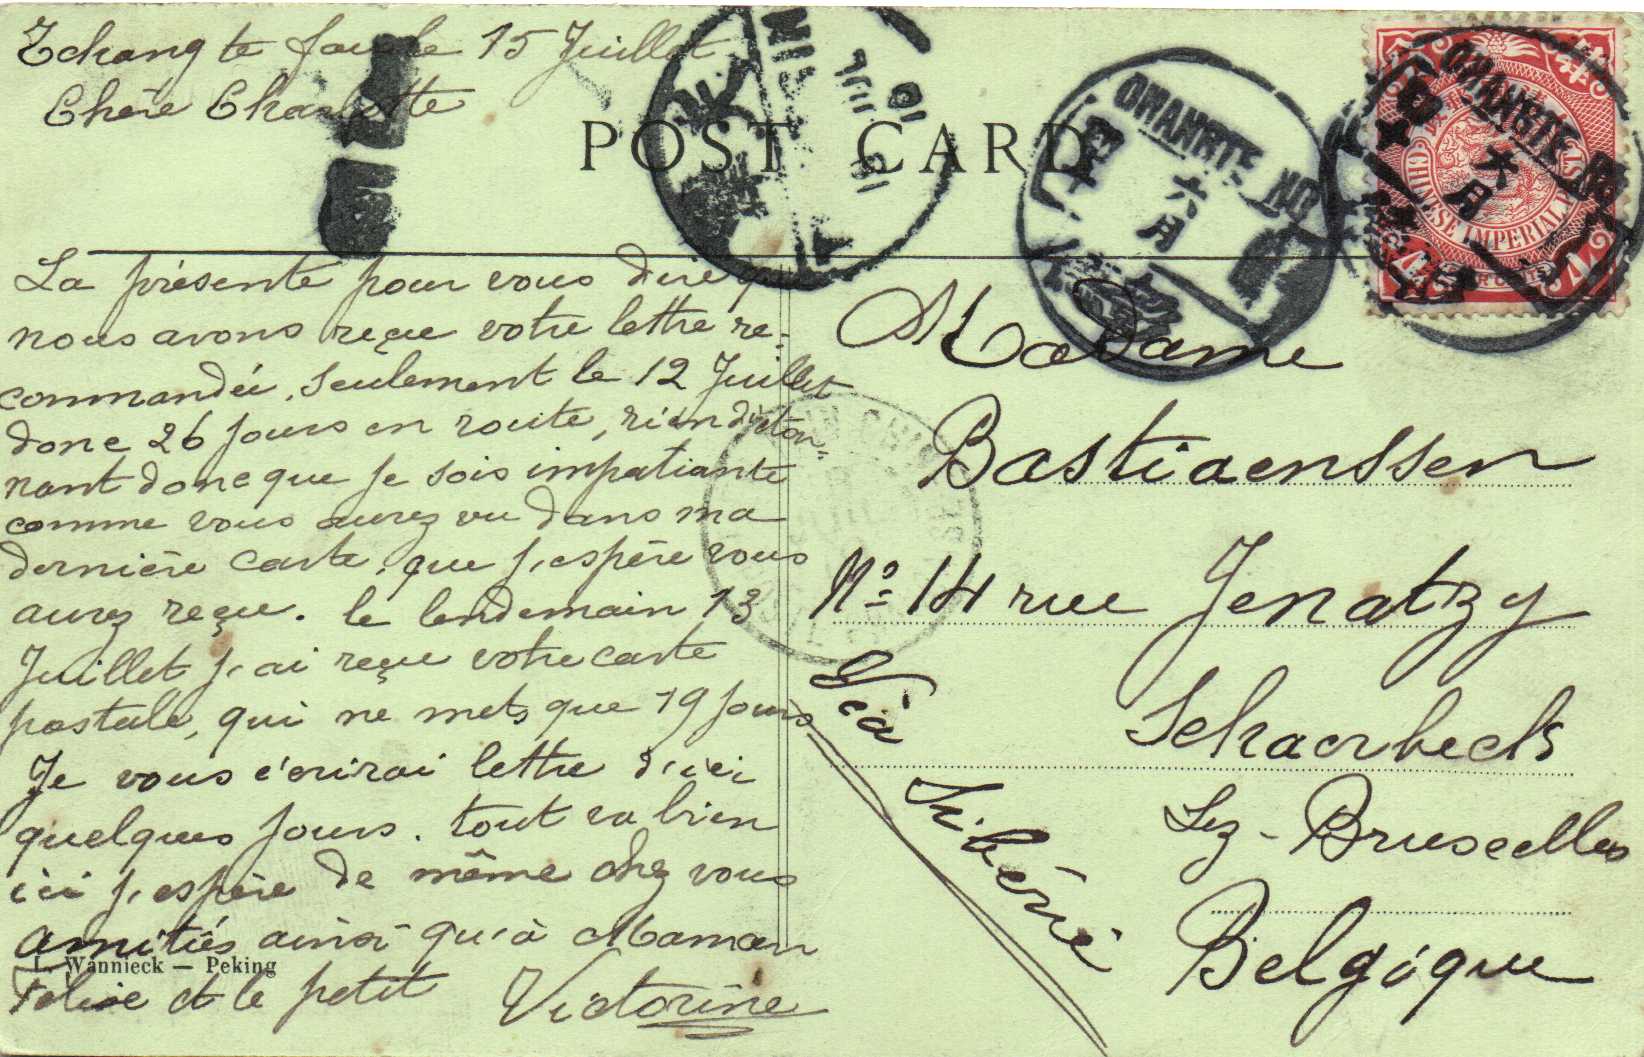 Tchang te fou le 15 Juillet
Chère Charlotte
POST CARD
La présente pour vous dire q
nous avons reçu votre lettre re-
commandée, seulement le 12 Juillet
donc 26 jours en route, rien d'éton"
nant donc que je sois impatiante
comme vous aurez vu dans ma
dernière carte, que j'espère vous
aurez reçu. le lendemain 13
Juillet j'ai reçu votre carte
postale, qui ne mets que 19 jours
Je vous écrirai lettre d'ici
quelques jours. tout va bien
ici j'espère de même chez vous
amitiés ainsi qu'à Maman
et le petit Victorine
L. Wannieck — Peking
Madame
Bastiaenssen
No 14 rue Jenatzy
Schaerbeek
Lez-Bruxelles
Belgique
Via Sibérie
CHANGTE
六
月
CHANGTE
六
月
CHINESE IMPERIAL POST
4
4